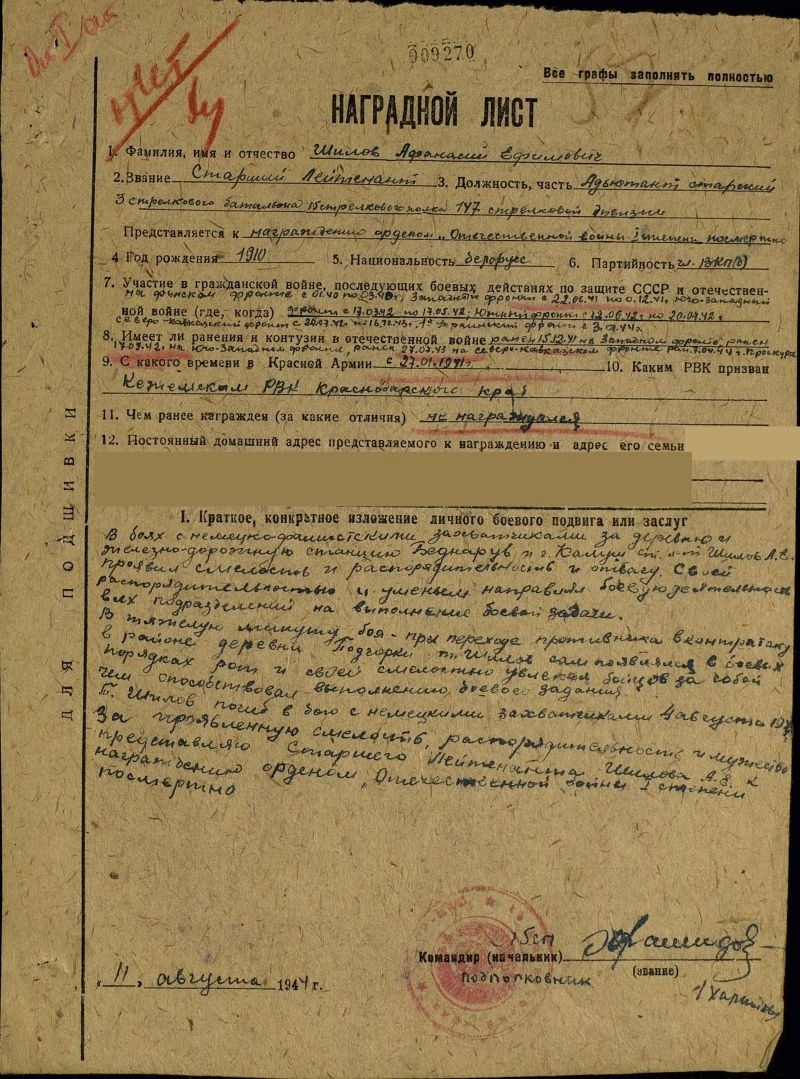 009270
Все графы заполнять полностью
НАГРАДНОЙ ЛИСТ
1. Фамилия, имя и отчество Шилов Афанасий Ефимович
2. Звание Старший Лейтенант 3. Должность, часть Адъютант старший
3 стрелкового батальона 15 стрелкового полка 147 стрелковой дивизии
Представляется к награждению орденом „Отечественной войны I степени посмертно
4 Год рождения 1910 5. Национальность белорус 6. Партийность чл. ВКП(б)
7. Участие в гражданской войне, последующих боевых действиях по защите СССР и отечествен-
на финском фронте с 01.40 по 03.40г., Западный фронт с 22.06.41 по 0.12.41, Юго-Западный
ной войне (где, когда) фронт с 17.03.42 по 17.05.42; Южный фронт с 12.06.42г. по 20.07.42г.
Северо-Кавказский фронт с по 1й Украинский фронт с
8. Имеет ли ранения и контузии в отечественной войне ранен 15.12.41 на Западном фронте, ранен
17.05.42г. на Юго-Западном фронте, ранен 27.07.43 на Северо-Кавказском фронте ран. 7.04.44 г.
9. С какого времени в Красной Армии с 27.01.1941г. 10. Каким РВК призван
РВК Краснодарского края
11. Чем ранее награжден (за какие отличия) не награждался
12. Постоянный домашний адрес представляемого к награждению и адрес его семьи
I. Краткое, конкретное изложение личного боевого подвига или заслуг
В боях с немецко-фашистскими захватчиками за деревню и
железно-дорожную станцию Беднарув и г. Калуш ст. л-т Шилов А.Е.
проявил смелость и распорядительность и отвагу. Своей
распорядительностью и уменьем направлял боевую деятельность
всех подразделений на выполнение боевой задачи.
В тяжелую минуту боя - при переходе противника в контратаку
в районе деревни Подгорки т. Шилов сам появлялся в боевых
порядках рот и своей смелостью увлекал бойцов за собой
чем способствовал выполнению боевого задания.
Т. Шилов погиб в бою с немецкими захватчиками августа
За проявленную смелость, распорядительность и мужество
представляю Старшего Лейтенанта Шилова А.Е. к
награждению орденом „Отечественной войны I степени
посмертно
15 сп
Командир (начальник)
Подполковник
(звание)
„11„ августа 1944 г.
ДЛЯ ПОДШИВКИ